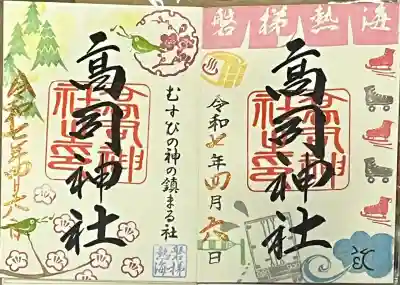 高司神社
むすびの神の鎮まる社
令和七年四月六日
磐梯熱海
磐梯熱海
高司神社
令和七年四月六日